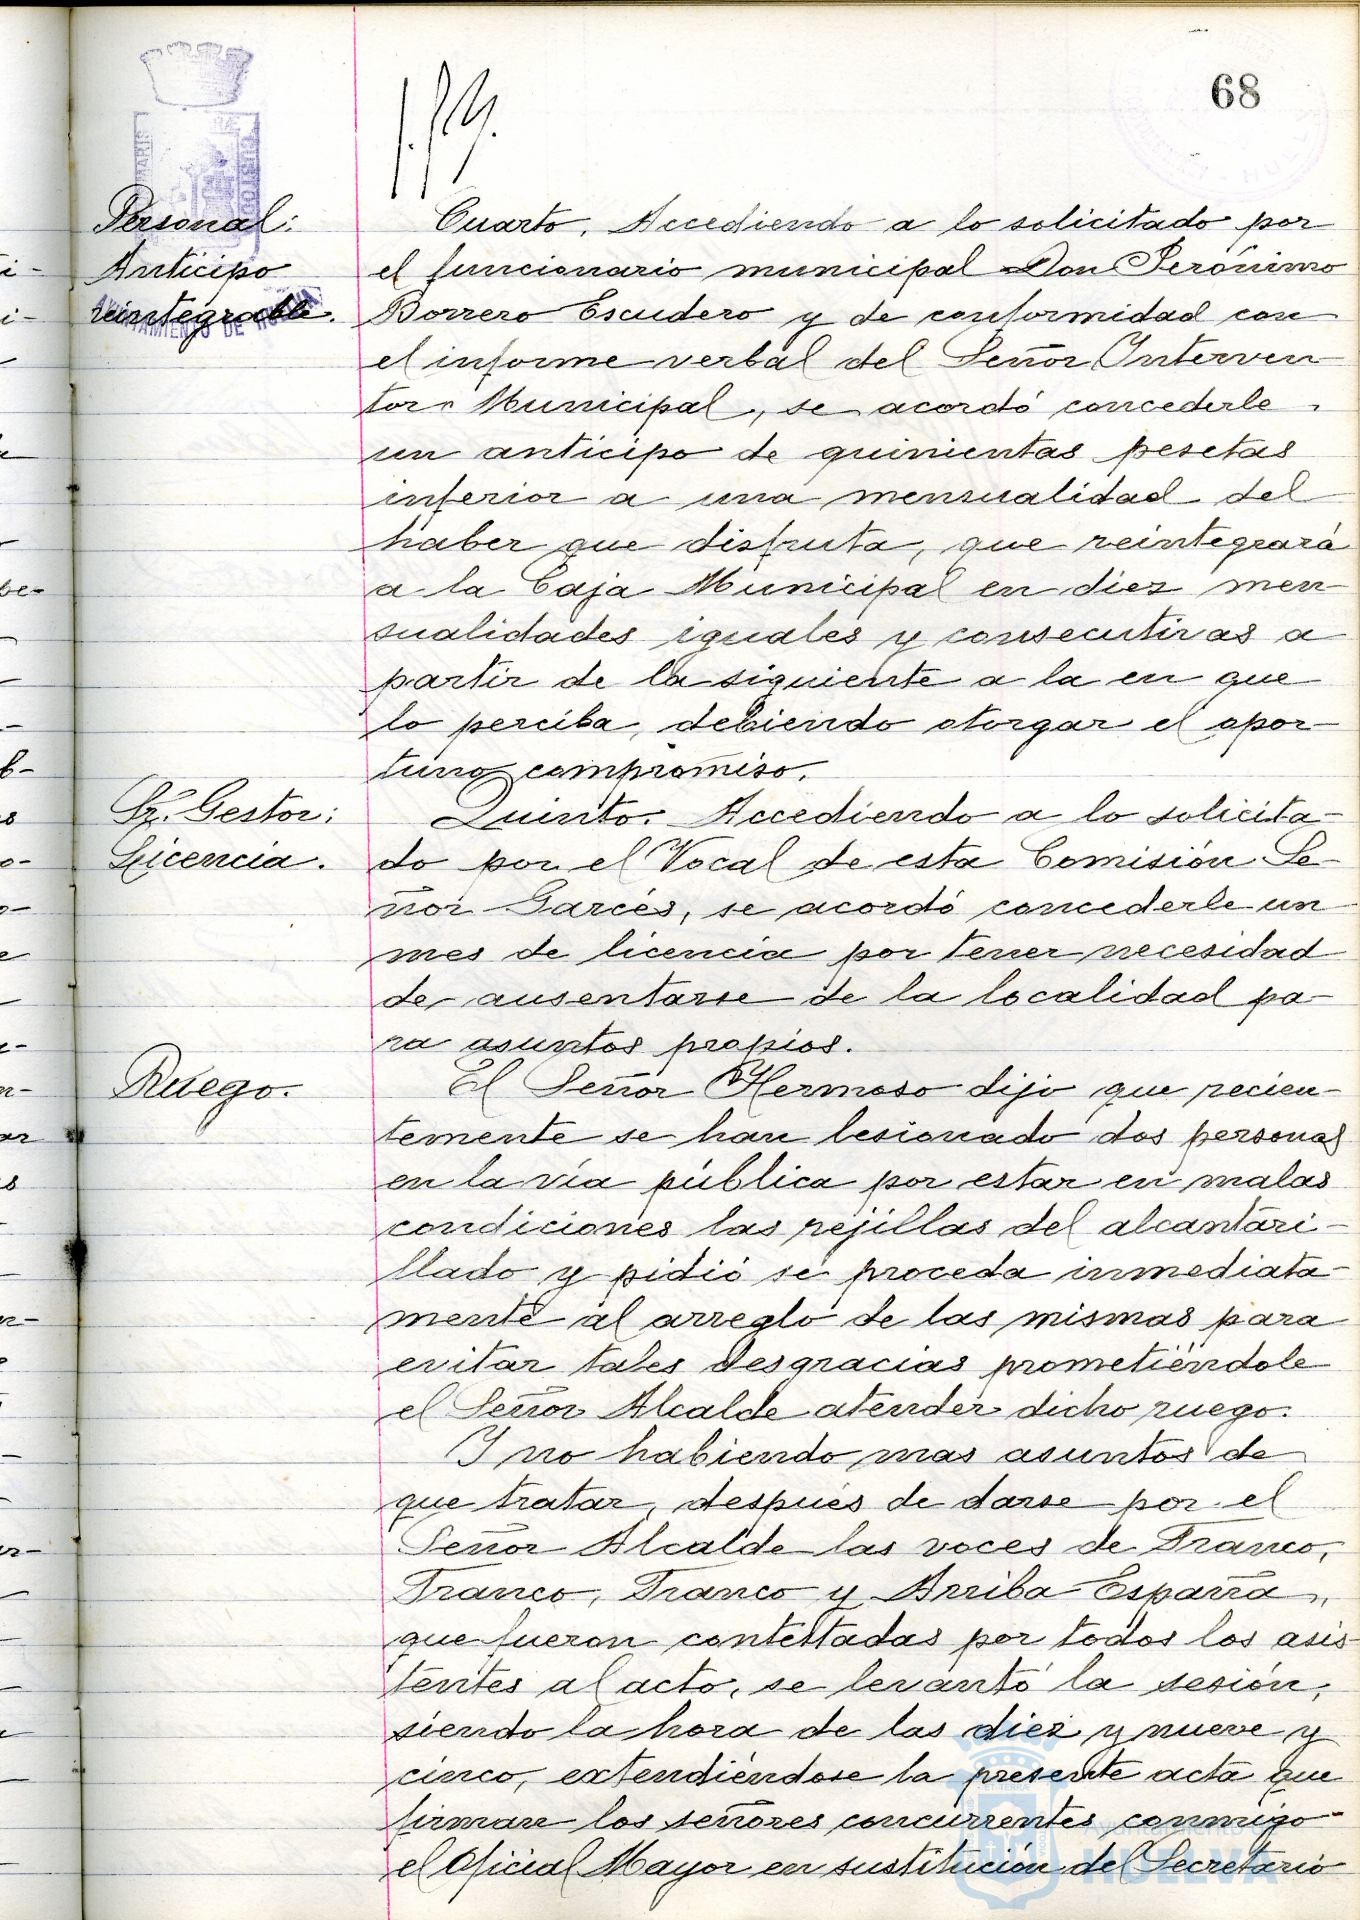 68
Personal:
Anticipo
reintegrable.
AYUNTAMIENTO DE HUELVA
Cuarto. Accediendo a lo solicitado por
el funcionario municipal Don Jerónimo
Borrero Escudero y de conformidad con
el informe verbal del Señor Interven-
tor Municipal, se acordó concederle
un anticipo de quinientas pesetas
inferior a una mensualidad del
haber que disfruta, que reintegrará
a la Caja Municipal en diez men-
sualidades iguales y consecutivas a
partir de la siguiente a la en que
lo perciba, debiendo otorgar el opor-
tuno compromiso.
Sr. Gestor:
Licencia.
Quinto. Accediendo a lo solicita-
do por el Vocal de esta Comisión Se-
ñor Garcés, se acordó concederle un
mes de licencia por tener necesidad
de ausentarse de la localidad pa-
ra asuntos propios.
Ruego.
El Señor Hermoso dijo que recien-
temente se han lesionado dos personas
en la vía pública por estar en malas
condiciones las rejillas del alcantari-
llado y pidió se proceda inmediata-
mente al arreglo de las mismas para
evitar tales desgracias prometiéndole
el Señor Alcalde atender dicho ruego.
Y no habiendo mas asuntos de
que tratar, después de darse por el
Señor Alcalde las voces de Franco,
Franco, Franco y Arriba España,
que fueron contestadas por todos los asis-
tentes al acto, se levantó la sesión,
siendo la hora de las diez y nueve y
cinco, extendiéndose la presente acta que
firman los señores concurrentes, conmigo
el Oficial Mayor en sustitución del Secretario
Ayuntamiento de
HUELVA